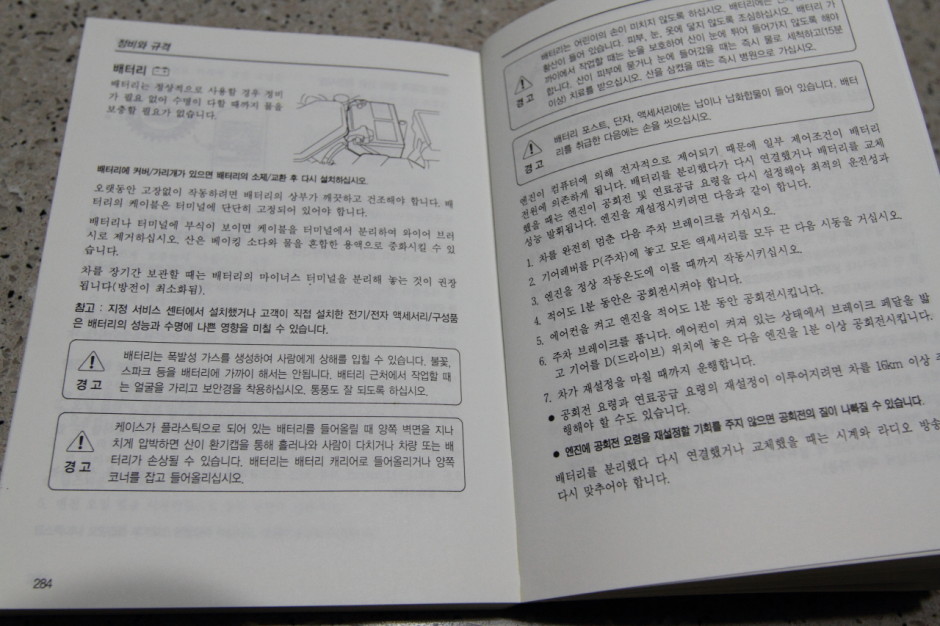 정비와 규격
배터리
배터리는 정상적으로 사용할 경우 정비
가 필요 없어 수명이 다할 때까지 물을
보충할 필요가 없습니다.
배터리에 커버/가리개가 있으면 배터리의 소제/교환 후 다시 설치하십시오.
오랫동안 고장없이 작동하려면 배터리의 상부가 깨끗하고 건조해야 합니다. 배
터리의 케이블은 터미널에 단단히 고정되어 있어야 합니다.
배터리나 터미널에 부식이 보이면 케이블을 터미널에서 분리하여 와이어 브러
시로 제거하십시오. 산은 베이킹 소다와 물을 혼합한 용액으로 중화시킬 수 있
습니다.
차를 장기간 보관할 때는 배터리의 마이너스 터미널을 분리해 놓는 것이 권장
됩니다(방전이 최소화됨).
참고 : 지정 서비스 센터에서 설치했거나 고객이 직접 설치한 전기/전자 액세서리/구성품
은 배터리의 성능과 수명에 나쁜 영향을 미칠 수 있습니다.
경고
배터리는 폭발성 가스를 생성하여 사람에게 상해를 입힐 수 있습니다. 불꽃,
스파크 등을 배터리에 가까이 해서는 안됩니다. 배터리 근처에서 작업할 때
는 얼굴을 가리고 보안경을 착용하십시오. 통풍도 잘 되도록 하십시오.
경고
케이스가 플라스틱으로 되어 있는 배터리를 들어올릴 때 양쪽 벽면을 지나
치게 압박하면 산이 환기캡을 통해 흘러나와 사람이 다치거나 차량 또는 배
터리가 손상될 수 있습니다. 배터리는 배터리 캐리어로 들어올리거나 양쪽
코너를 잡고 들어올리십시오.
284
배터리는 어린이의 손이 미치지 않도록 하십시오. 배터리에는
황산이 들어 있습니다. 피부, 눈, 옷에 닿지 않도록 조심하십시오. 배터리 가
까이에서 작업할 때는 눈을 보호하여 산이 눈에 튀어 들어가지 않도록 해야
합니다. 산이 피부에 묻거나 눈에 들어갔을 때는 즉시 물로 세척하고(15분
이상) 치료를 받으십시오. 산을 삼켰을 때는 즉시 병원으로 가십시오.
경고
배터리 포스트, 단자, 액세서리에는 납이나 납화합물이 들어 있습니다. 배터
리를 취급한 다음에는 손을 씻으십시오.
경고
엔진이 컴퓨터에 의해 전자적으로 제어되기 때문에 일부 제어조건이 배터리
전원에 의존하게 됩니다. 배터리를 분리했다가 다시 연결했거나 배터리를 교체
했을 때는 엔진이 공회전 및 연료공급 요령을 다시 설정해야 최적의 운전성과
성능 발휘됩니다. 엔진을 재설정시키려면 다음과 같이 합니다.
1. 차를 완전히 멈춘 다음 주차 브레이크를 거십시오.
2. 기어레버를 P(주차)에 놓고 모든 액세서리를 모두 끈 다음 시동을 거십시오.
3. 엔진을 정상 작동온도에 이를 때까지 작동시키십시오.
4. 적어도 1분 동안은 공회전시켜야 합니다.
5. 에어컨을 켜고 엔진을 적어도 1분 동안 공회전시킵니다.
6. 주차 브레이크를 풉니다. 에어컨이 켜져 있는 상태에서 브레이크 페달을 밟
고 기어를 D(드라이브) 위치에 놓은 다음 엔진을 1분 이상 공회전시킵니다.
7. 차가 재설정을 마칠 때까지 운행합니다.
● 공회전 요령과 연료공급 요령의 재설정이 이루어지려면 차를 16km 이상
행해야 할 수도 있습니다.
● 엔진에 공회전 요령을 재설정할 기회를 주지 않으면 공회전의 질이 나빠질 수 있습니다.
배터리를 분리했다 다시 연결했거나 교체했을 때는 시계와 라디오 방송
다시 맞추어야 합니다.